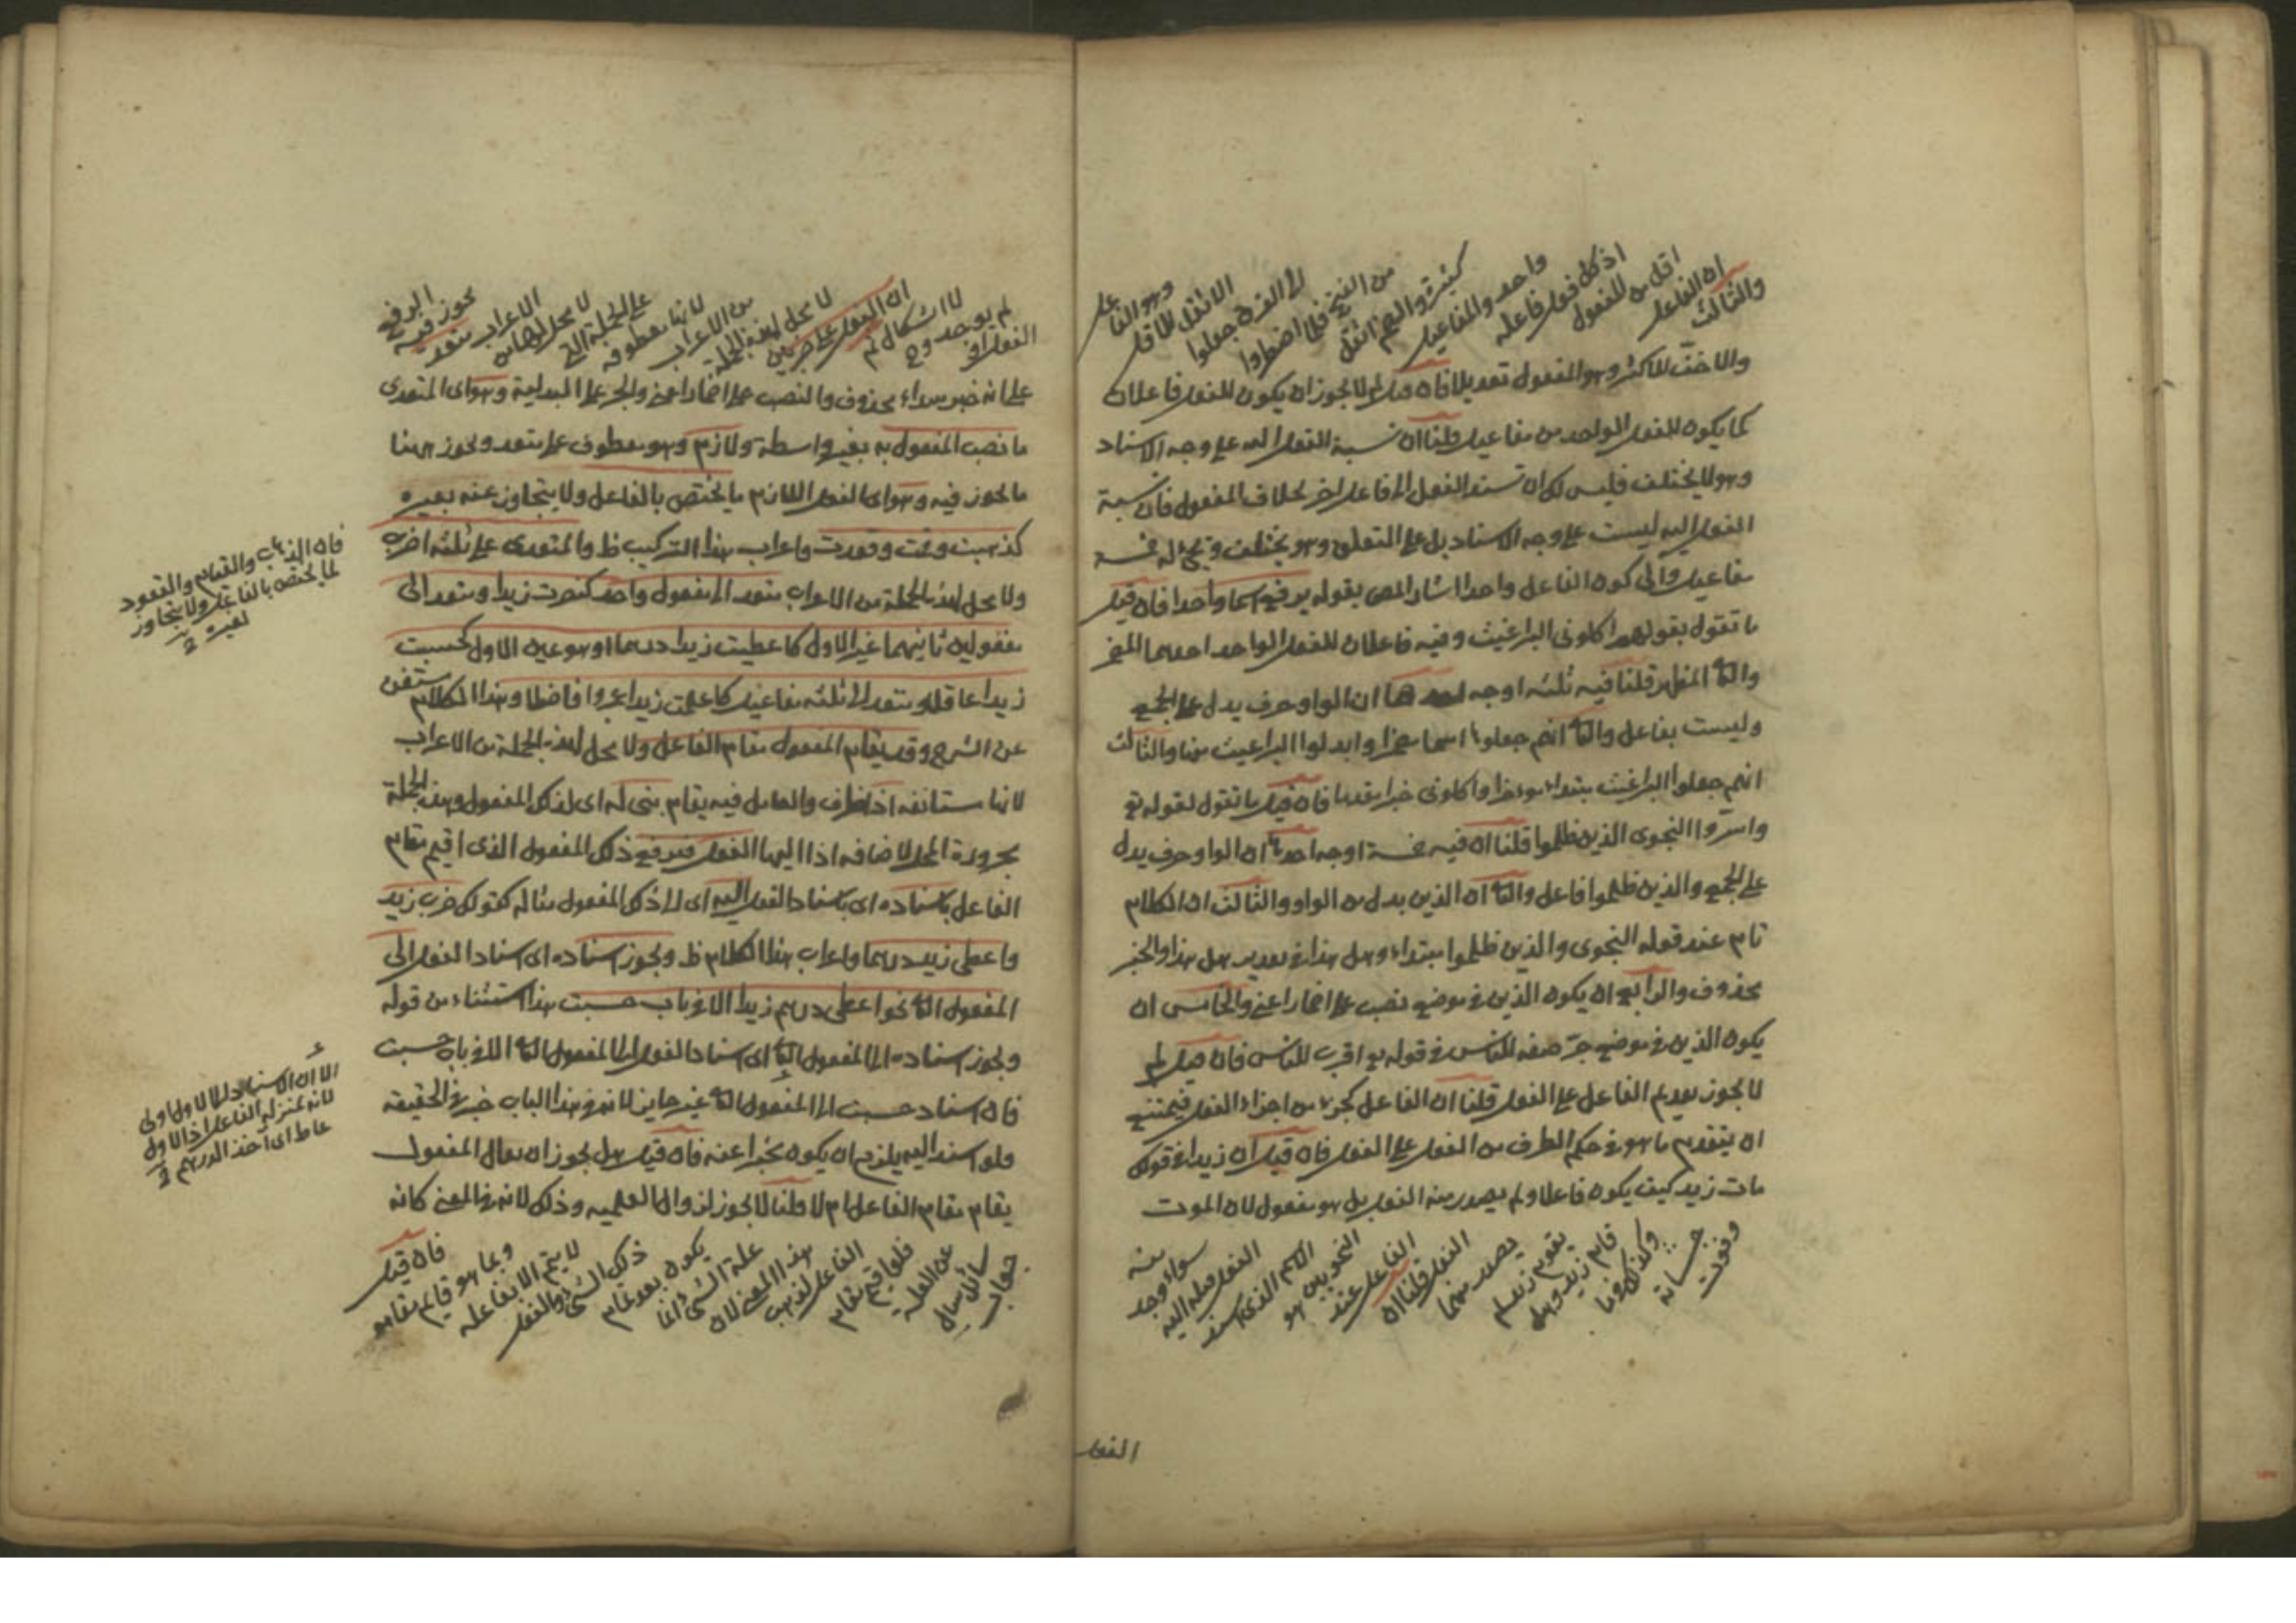 والثالث
ان الفاعل
اقل من المفعول
اذ كل فعل فاعله
واحد والمفاعيل
كثيرة والضم اثقل
من الفتح فلما اضطروا
الى الفرق جعلوا
الاثقل للاقل
وهو الفاعل
والاخف للاكثر وهو المفعول تعديلا فان قيل لم لا يجوز ان يكون للفعل فاعلان
كما يكون للفعل الواحد من مفاعيل قلنا ان نسبة الفعل اليه على وجه الاسناد
وهو لا يختلف فليس لك ان تسند الفعل الى فاعل اخر بخلاف المفعول فان نسبة
الفعل اليه ليست على وجه الاسناد بل على التعلق وهو يختلف ويجئ له خمسة
مفاعيل والى كون الفاعل واحدا اشار المص بقوله يرفع اسما واحدا فان قيل
ما تقول بقولهم اكلونى البراغيث وفيه فاعلان للفعل الواحد احدهما المضمر
والثا المظهر قلنا فيه ثلثه اوجه احدها ان الواو حرف يدل على الجمع
وليست بفاعل والثا انهم جعلوها اسما مضمرا وابدلوا البراغيث منها والثالث
انهم جعلوا البراغيث مبتداء مؤخرا واكلونى خبرا مقدما فان قيل ما تقول لقوله تع
واسروا النجوى الذين ظلموا قلنا ان فيه خمسة اوجه احدها ان الواو حرف يدل
على الجمع والذين ظلموا فاعل والثا ان الذين بدل من الواو والثالث ان الكلام
تام عند قوله النجوى والذين ظلموا مبتداء وهل هذا فى تقدير هل هذا والخبر
محذوف والرابع ان يكون الذين فى موضع نصب على اضمار اعنى والخامس ان
يكون الذين فى موضع جر صفه للناس فى قوله تع اقرب للناس فان قيل لم
لا يجوز تقديم الفاعل على الفعل قلنا ان الفاعل كجزء من اجزاء الفعل فيمتنع
ان يتقدم ما هو فى حكم الطرف من الفعل على الفعل فان قيل ان زيدا فى قولك
مات زيد كيف يكون فاعلا ولم يصدر منه الفعل بل هو مفعول لان الموت
وكذلك قولنا
قام زيد وهل
يقوم زيد لم
يصدر منهما
الفعل قلنا ان
الفاعل عند
النحويين هو
الاسم الذى اسند
الفعل قبله اليه
سواء وجد
منه
الفعل
لم يوجد
الفعل
لا اشكال
ان الفعل على ضربين
لا محل لهذه الجملة
من الاعراب
لانها معطوفه
على الجملة التى
لا محل لها من
الاعراب متعد
يجوز فيه
الرفع
على انه خبر مبتداء محذوف والنصب على اضمار اعنى والجر على البدلية وهو اى المتعدى
ما نصب المفعول به بغير واسطة ولازم وهو معطوف على متعد ويجوز ههنا
ما يجوز فيه وهو اى الفعل اللازم ما يختص بالفاعل ولا يتجاوز عنه بغيره
كذهبت وقمت وقعدت واعراب هذا التركيب ظ والمتعدى على ثلثه اضرب
ولا محل لهذه الجملة من الاعراب متعد الى مفعول واحد كنصرت زيدا ومتعد الى
مفعولين ثانيهما غير الاول كاعطيت زيدا درهما او هو عين الاول كحسبت
زيدا عاقلا ومتعد الى ثلثه مفاعيل كاعلمت زيدا عمروا فاضلا وهذا الكلام مستغن
عن الشرح وقد يقام المفعول مقام الفاعل ولا محل لهذه الجملة من الاعراب
لانها مستانفه اذا ظرف والعامل فيه يقام بنى له اى لذلك المفعول وهذه الجملة
مجرورة المحل لاضافه اذا اليها الفعل فيرفع ذلك المفعول الذى اقيم مقام
الفاعل باسناده اى باسناد الفعل اليه اى الى ذلك المفعول مثاله كقولك ضرب زيد
واعطى زيد درهما واعراب هذا الكلام ظ ويجوز اسناده اى اسناد الفعل الى
المفعول الثا نحو اعطى درهم زيدا الا فى باب حسبت هذا استثناء من قوله
ويجوز اسناده الى المفعول الثا اى اسناد الفعل الى المفعول الثا الا فى باب حسبت
فان اسناد حسبت الى المفعول الثا غير جايز لانه فى هذا الباب خبر فى الحقيقه
فلو اسند اليه يلزم ان يكون مخبرا عنه فان قيل هل يجوز ان يقال المفعول
يقام مقام الفاعل ام لا قلنا لا يجوز لزوال العلميه وذلك لانه فى المعنى كانه
جواب
سائل سال
عن العلة
فلو اقيم مقام
الفاعل لذهب
هذا المعنى لان
علة الشئ انما
يكون بعد تمام
ذلك الشئ والفعل
لا يتم الا بفاعله
وبما هو قايم مقامه
فان قيل
فان الذهاب والقيام والقعود
لما يختص بالفاعل ولا يتجاوز
لغيره
الا ان الاسناد الى الاول اولى
لانه بمنزلة الفاعل اذ الاول
عاط اى اخذ الدرهم
الفعل